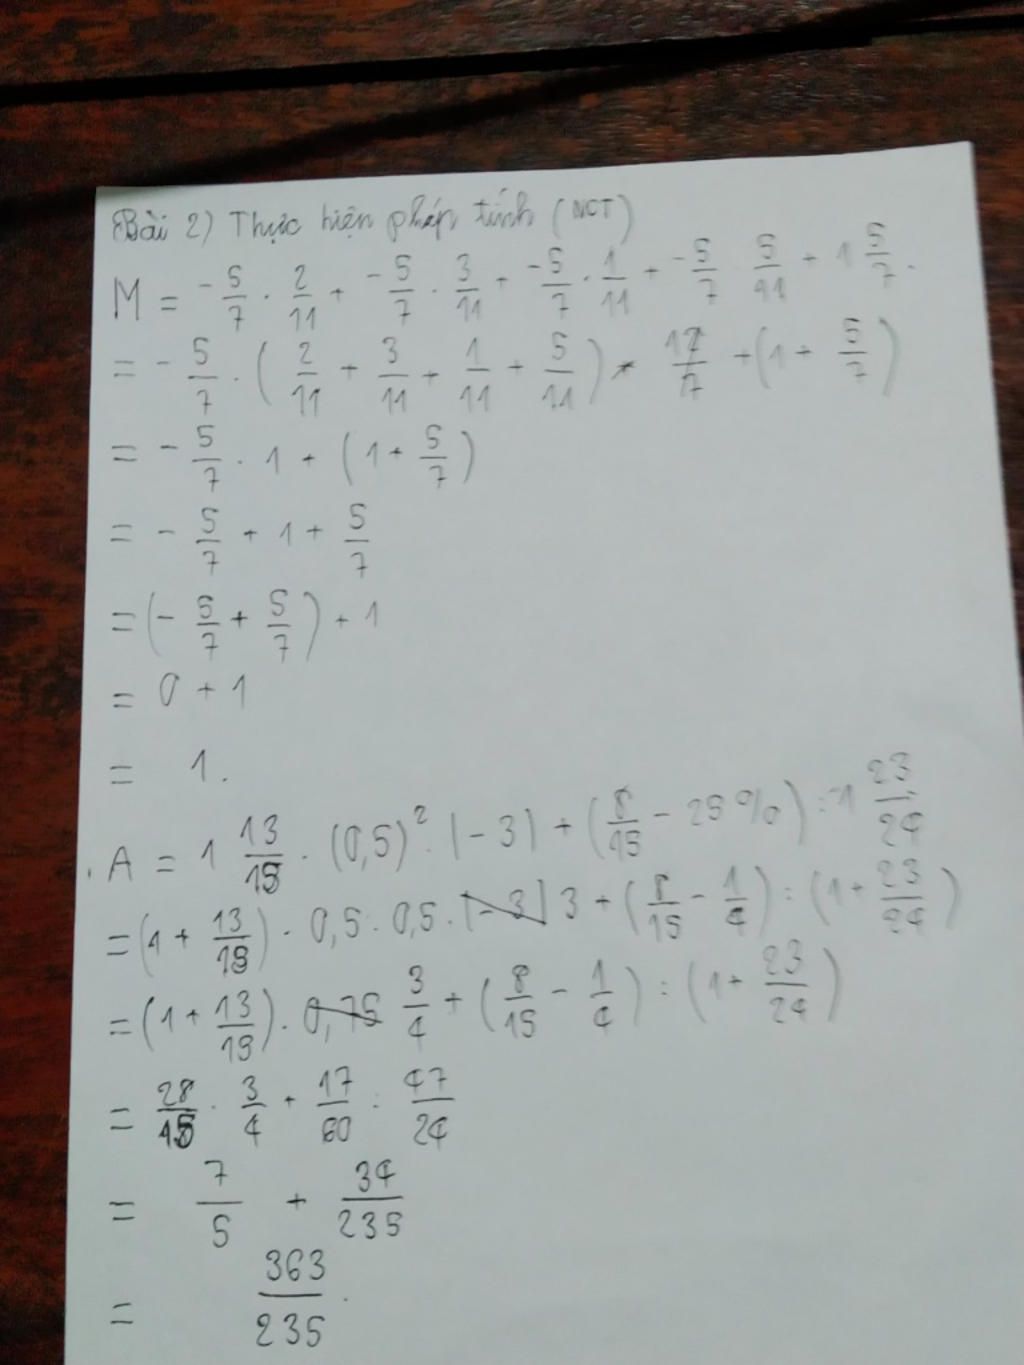 Bài 2) Thực hiện phép tính (NCT)
M = -5/7 . 2/11 + -5/7 . 3/11 + -5/7 . 1/11 + -5/7 5/11 + 1 5/7.
= - 5/7 . (2/11 + 3/11 + 1/11 + 5/11) + (1 + 5/7)
= - 5/7 . 1 + (1 + 5/7)
= - 5/7 + 1 + 5/7
= (- 5/7 + 5/7) + 1
= 0 + 1
= 1.
A = 1 13/15 . (0,5)² . |-3| + (8/15 - 25%) : 1 23/24
= (1 + 13/15) . 0,5 . 0,5 . 3 + (8/15 - 1/4) : (1 + 23/24)
= (1 + 13/15) . 3/4 + (8/15 - 1/4) : (1 + 23/24)
= 28/15 . 3/4 + 17/60 : 47/24
= 7/5 + 34/235
= 363/235.